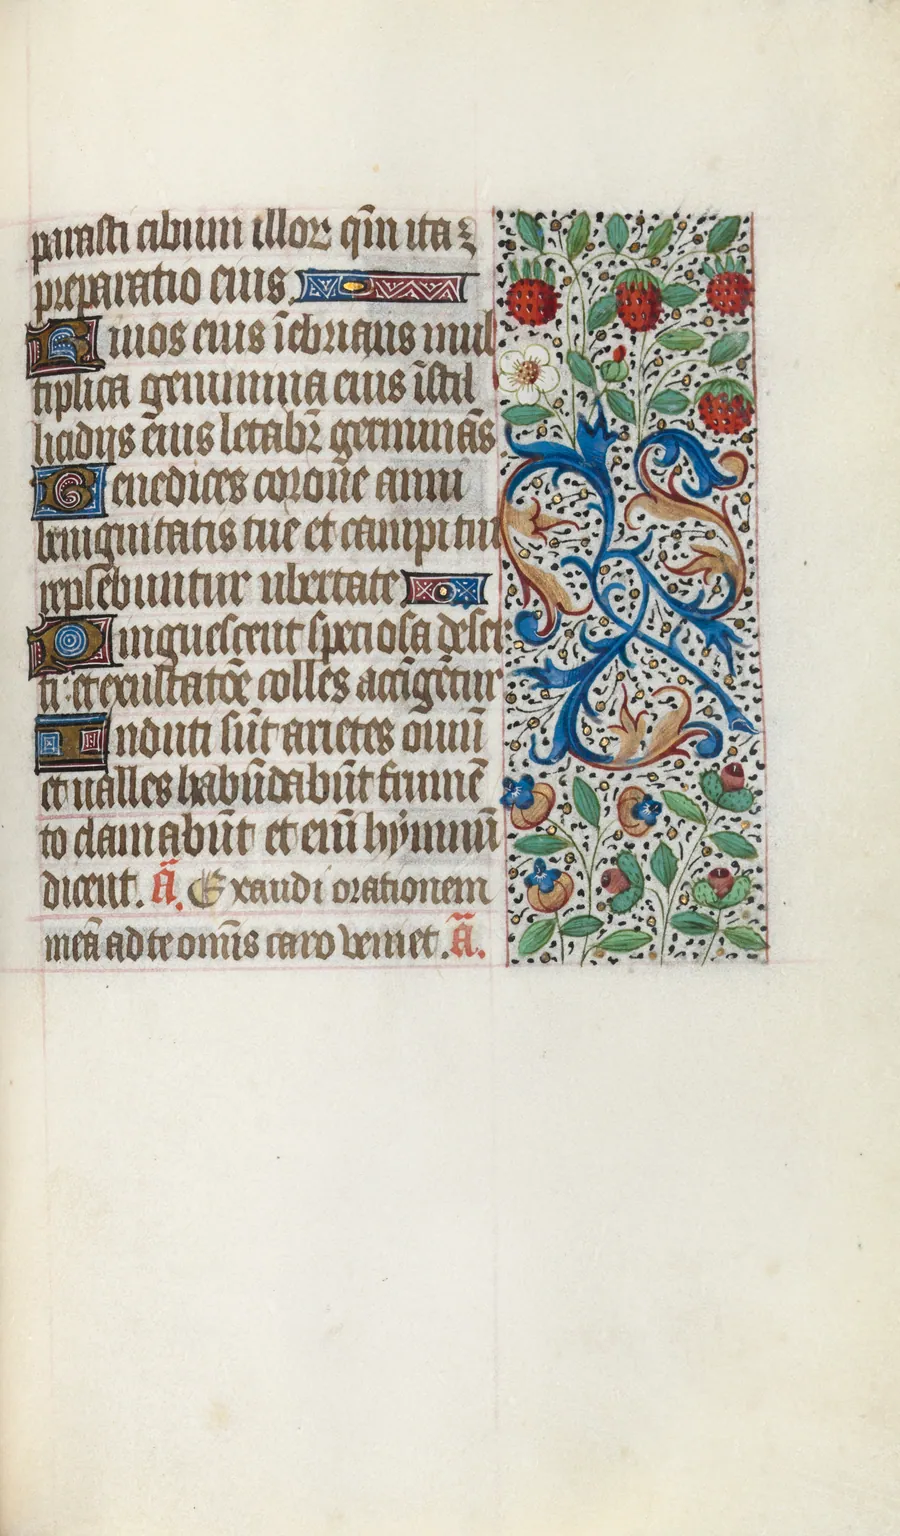 parasti cibum illoꝝ qm̄ ita ⁊
preparatio eius
Riuos eius īebrians mul
tiplica genimina eius ī stil
licidijs eius letabr̄ germinās
Benedices corone anni
benignitatis tue et campi tui
replebuntur ubertate
Pinguescent speciosa deser
ti: et exultatōe colles accīgētur
Induti sūt arietes ouiū
et ualles habūdabūt frumē
to clamabūt et eīm hymnū
dicent. ā. Exaudi orationem
meā ad te omīs caro veniet. ā.